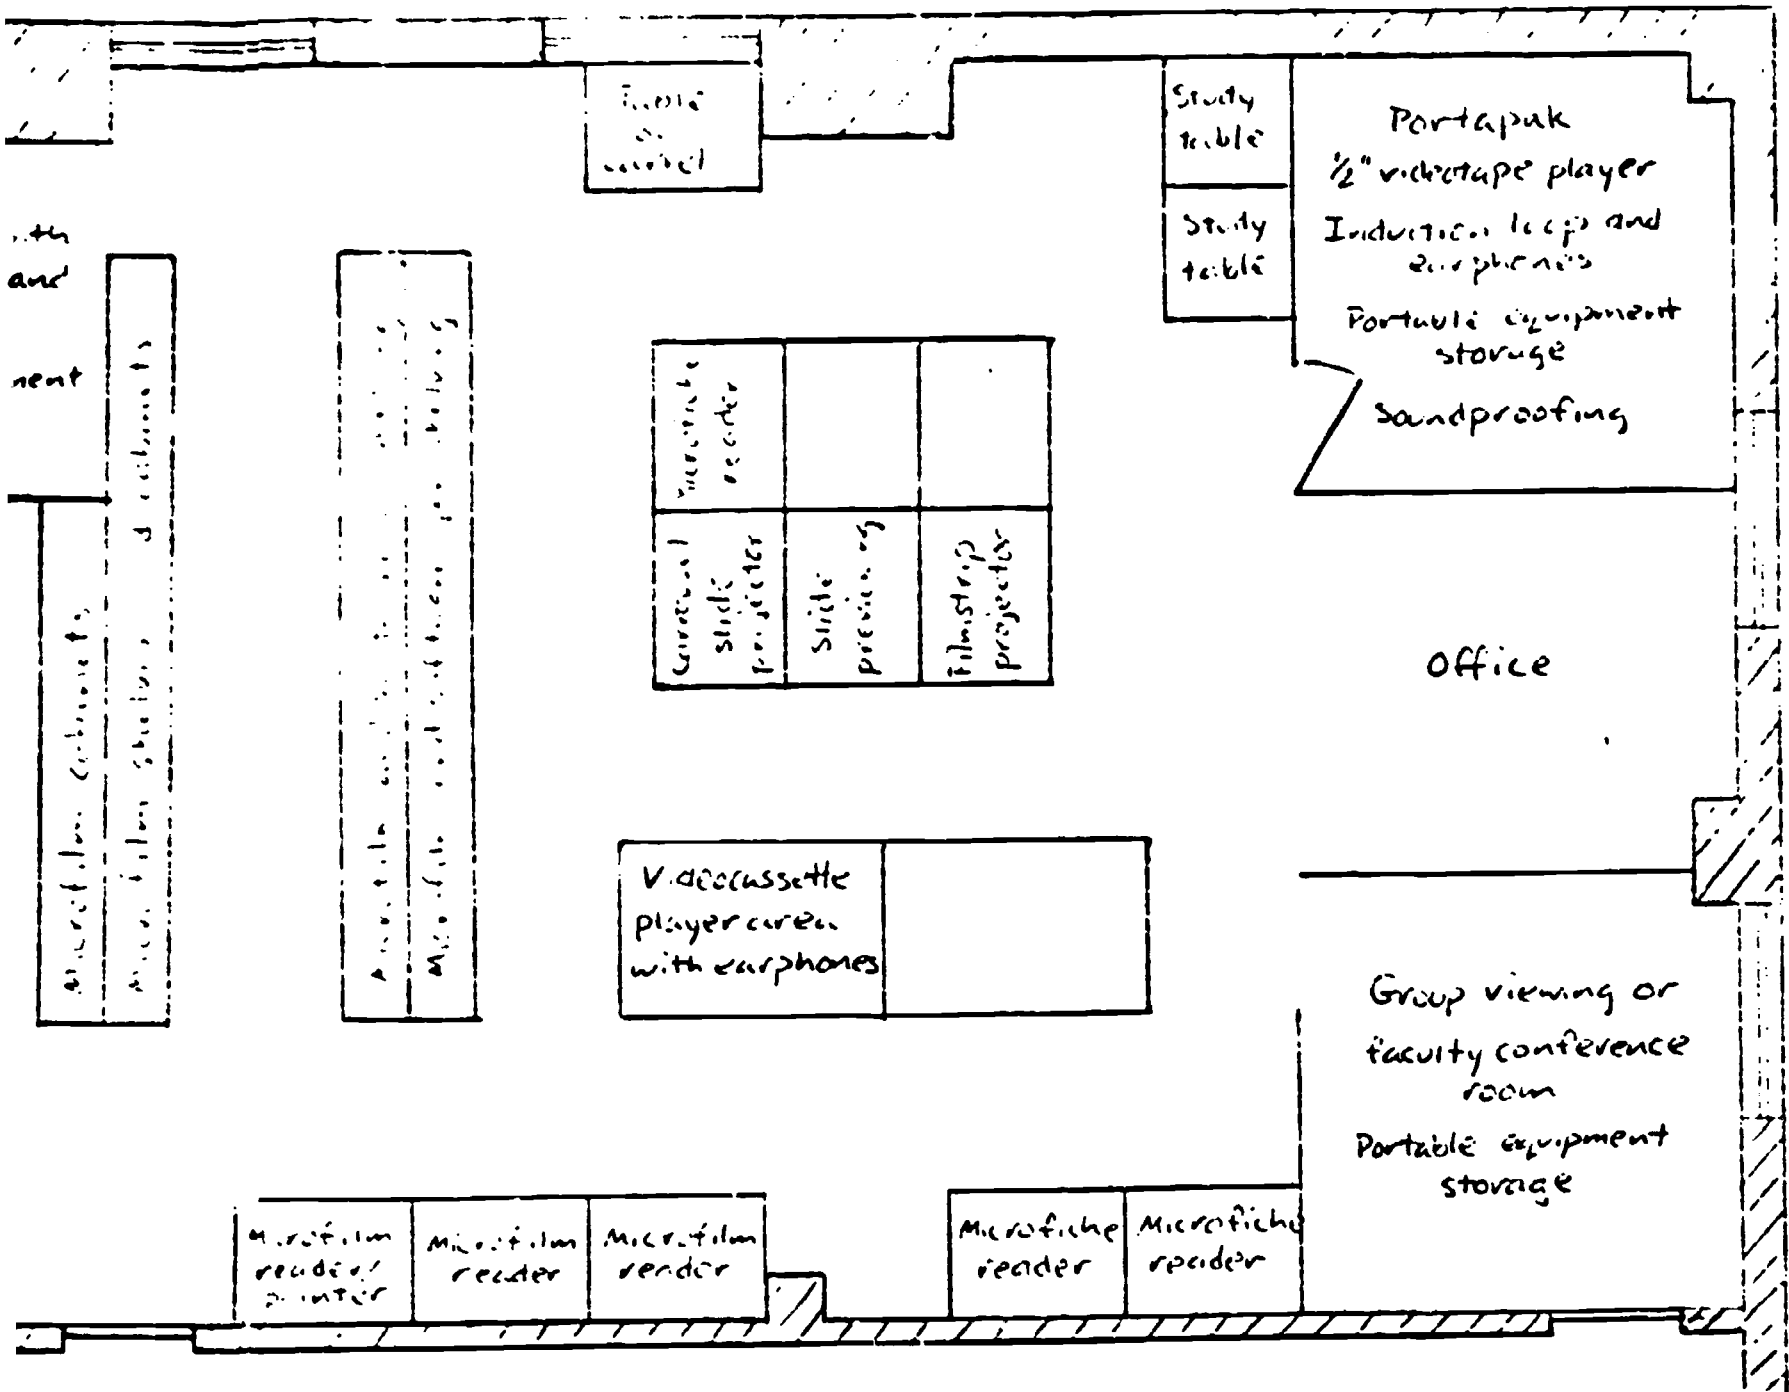 Table
or
carrel
Study
table
Study
table
Portapak
½" videotape player
Induction loop and
earphones
Portable equipment
storage
Soundproofing
and
Microfilm cabinets
Microfilm
cabinets
Microfiche
reader
Carousel
slide
projector
Slide
previewing
Filmstrip
projector
Office
Videocassette
player area
with earphones
Group viewing or
faculty conference
room
Portable equipment
storage
Microfilm
reader/
printer
Microfilm
reader
Microfilm
reader
Microfiche
reader
Microfiche
reader